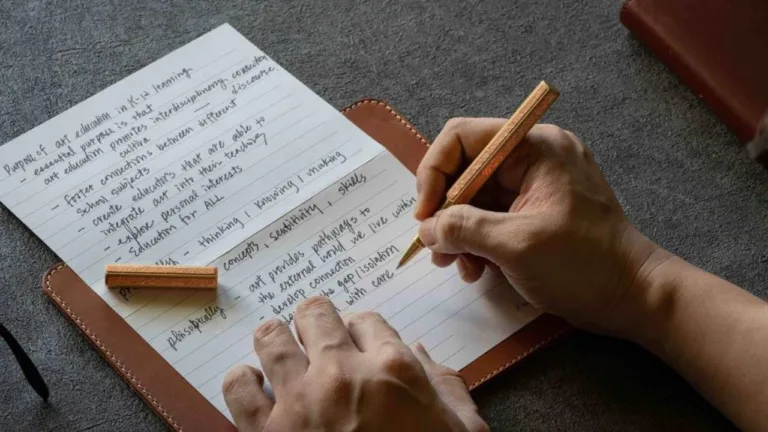 Purpose of art education in K-12 learning
- essential purpose is that
art education promotes interdisciplinary connection
cultiva discourse
- foster connections between different
school subjects
- create educators that are able to
integrate art into their teaching
- explore personal interests
- Education for ALL
- thinking / knowing / making
concepts, sensitivity, skills
- art provides pathways to
the external world we live within
- develop connection
the gap/isolation
with care